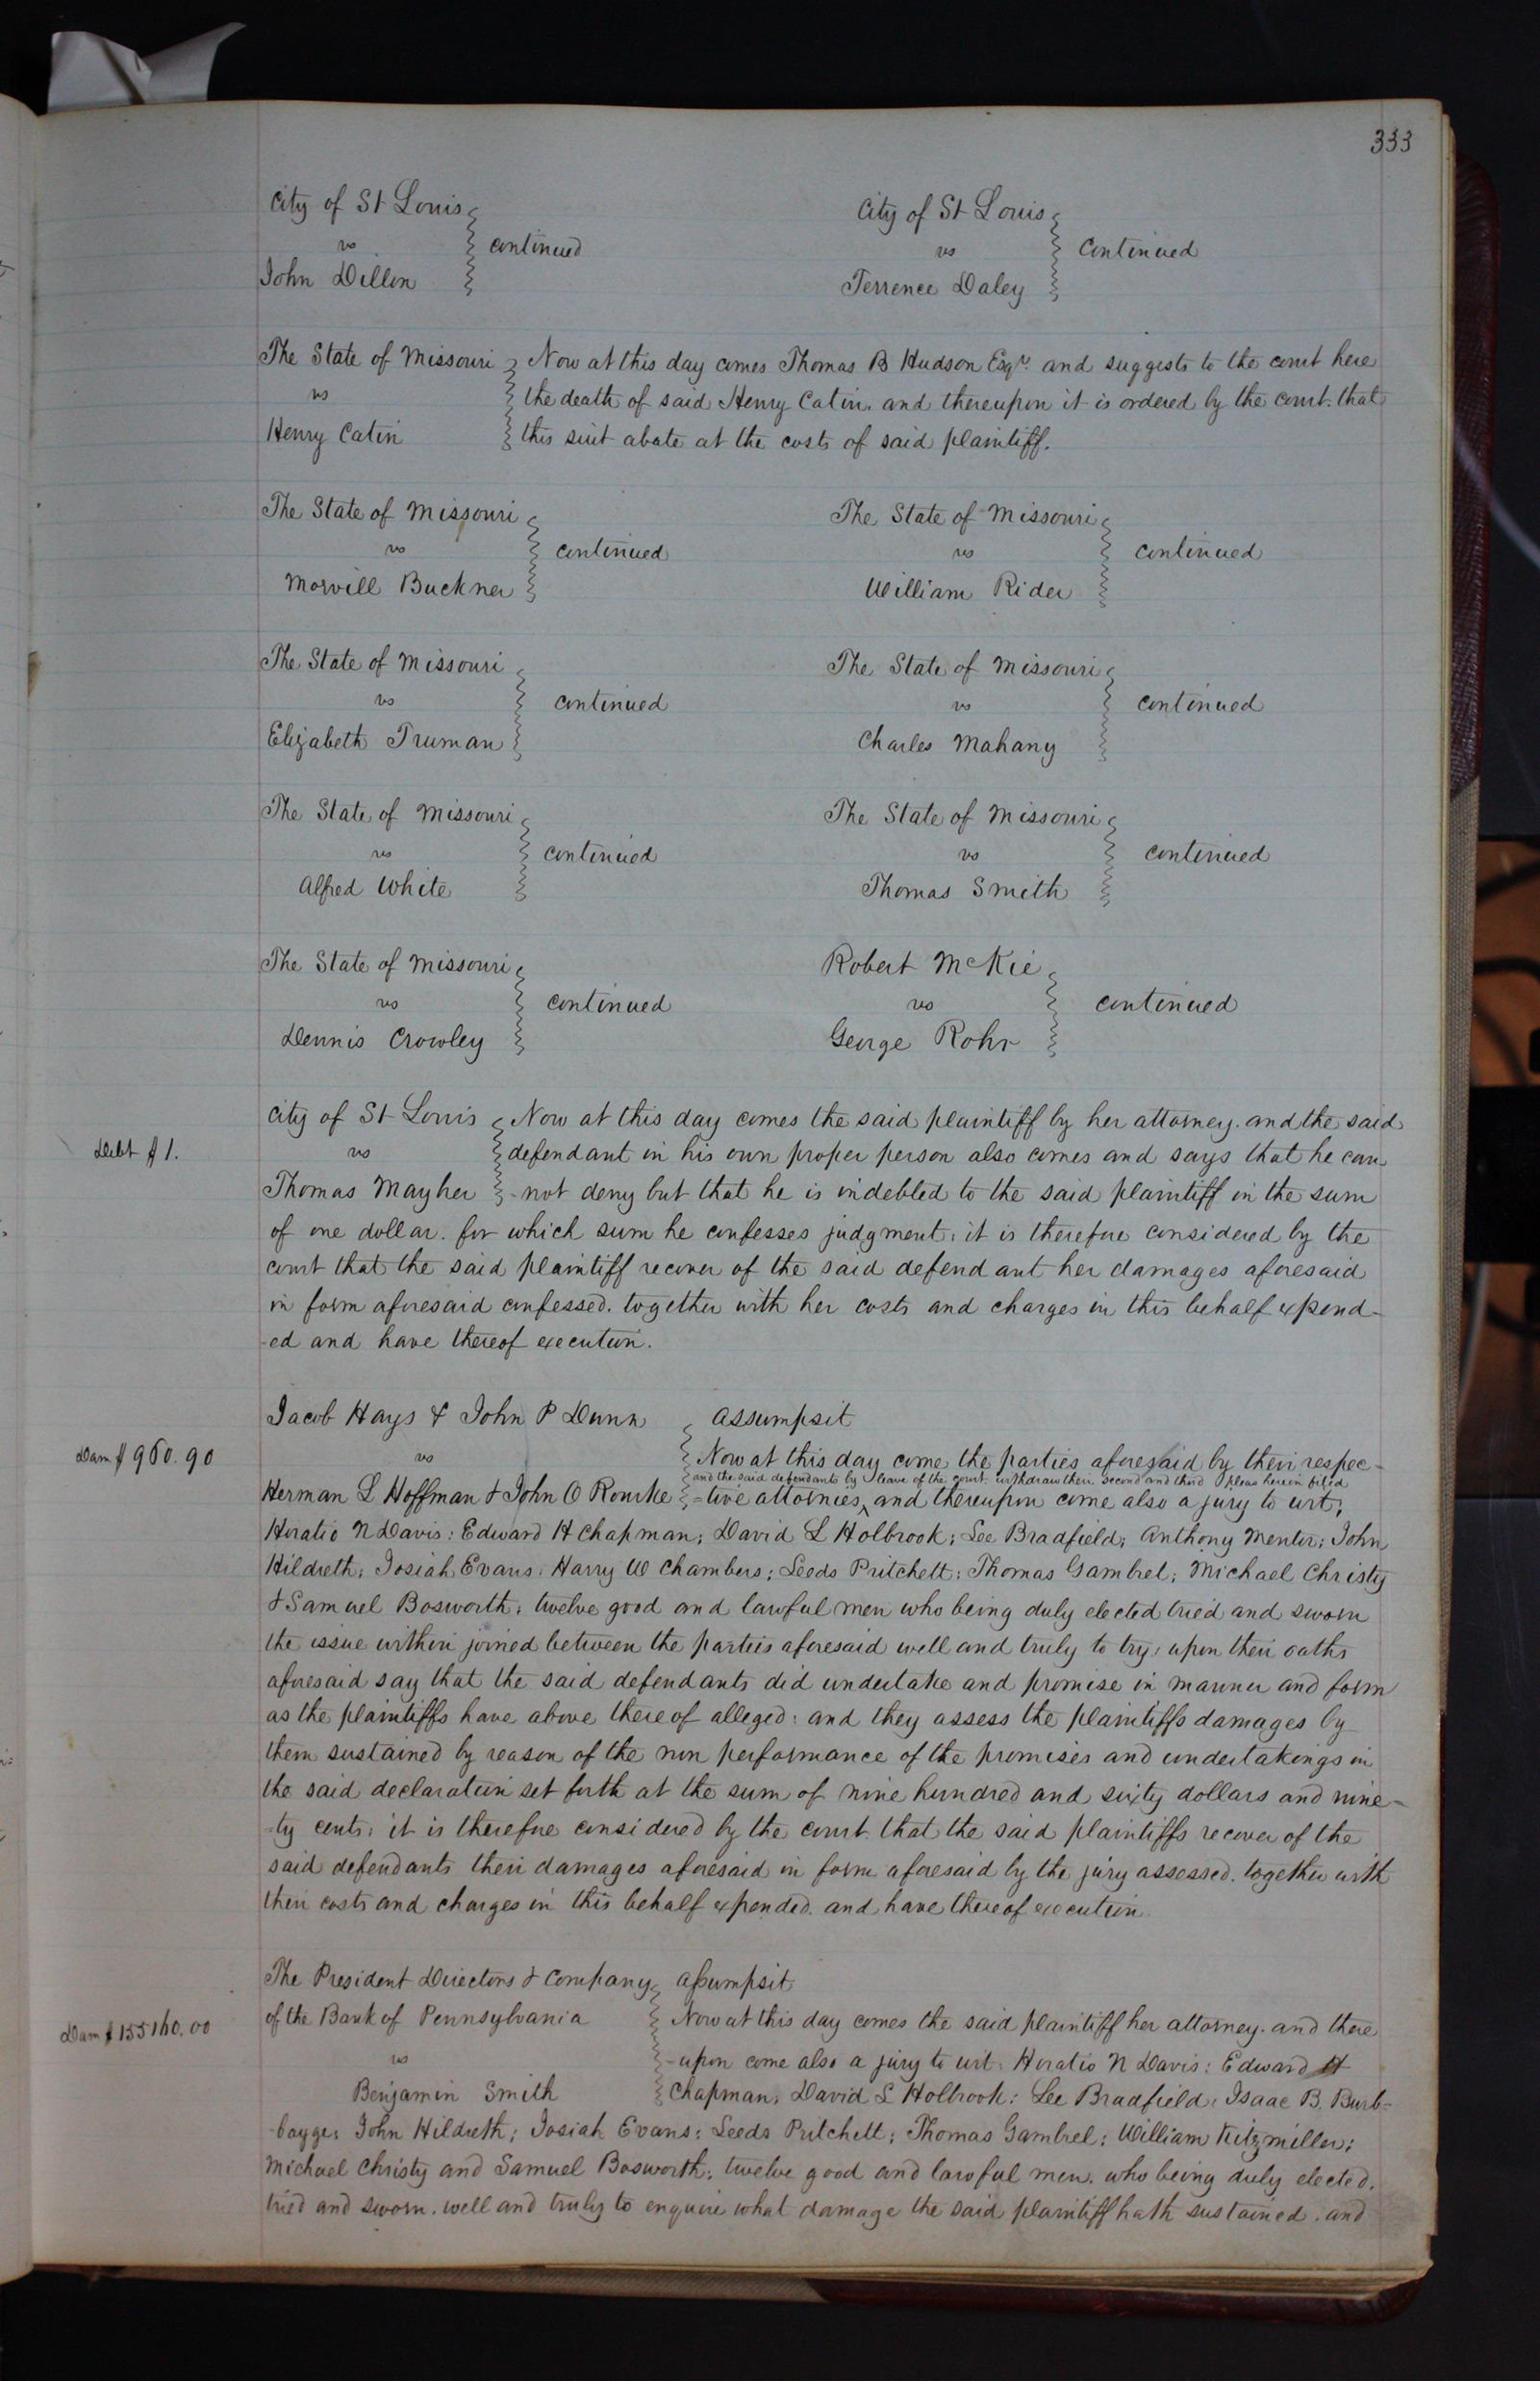 333
City of St Louis
vs
John Dillon
continued
City of St Louis
vs
Terrence Daley
continued
The State of Missouri
vs
Henry Catin
Now at this day comes Thomas B Hudson Esqr. and suggests to the court here
the death of said Henry Catin. and thereupon it is ordered by the court. that
this suit abate at the costs of said plaintiff.
The State of Missouri
vs
Morvill Buckner
continued
The State of Missouri
vs
William Rider
continued
The State of Missouri
vs
Elizabeth Truman
continued
The State of Missouri
vs
Charles Mahany
continued
The State of Missouri
vs
Alfred White
continued
The State of Missouri
vs
Thomas Smith
continued
The State of Missouri
vs
Dennis Crowley
continued
Robert McKie
vs
George Rohr
continued
Debt $1.
City of St Louis
vs
Thomas Mayher
Now at this day comes the said plaintiff by her attorney. and the said
defendant in his own proper person also comes and says that he can
-not deny but that he is indebted to the said plaintiff in the sum
of one dollar. for which sum he confesses judgment: it is therefore considered by the
court that the said plaintiff recover of the said defendant her damages aforesaid
in form aforesaid confessed. together with her costs and charges in this behalf expend-
-ed and have thereof execution.
Dam $960.90
Jacob Hays & John P Dunn
vs
Herman L Hoffman & John O Rourke
Assumpsit
Now at this day come the parties aforesaid by their respec-
and the said defendants by leave of the court. withdraw their second and third pleas herein filed
-tive attornies, and thereupon come also a jury to wit;
Horatio N Davis: Edward H Chapman; David L Holbrook; Lee Bradfield; Anthony Menter; John
Hildreth; Josiah Evans: Harry W Chambers; Leeds Pritchett; Thomas Gambrel; Michael Christy
& Samuel Bosworth; twelve good and lawful men who being duly elected tried and sworn
the issue within joined between the parties aforesaid well and truly to try, upon their oaths
aforesaid say that the said defendants did undertake and promise in manner and form
as the plaintiffs have above thereof alleged: and they assess the plaintiffs damages by
them sustained by reason of the non performance of the promises and undertakings in
the said declaration set forth at the sum of nine hundred and sixty dollars and nine-
-ty cents; it is therefore considered by the court. that the said plaintiffs recover of the
said defendants their damages aforesaid in form aforesaid by the jury assessed. together with
their costs and charges in this behalf expended. and have thereof execution.
Dam $155160.00
The President Directors & Company
of the Bank of Pennsylvania
vs
Benjamin Smith
Assumpsit
Now at this day comes the said plaintiff her attorney. and there
-upon come also a jury to wit: Horatio N Davis: Edward H
Chapman; David L Holbrook: Lee Bradfield; Isaac B. Burb-
-bayge; John Hildreth; Josiah Evans; Leeds Pritchett; Thomas Gambrel; William Kitzmiller;
Michael Christy and Samuel Bosworth; twelve good and lawful men. who being duly elected.
tried and sworn. well and truly to enquire what damage the said plaintiff hath sustained. and